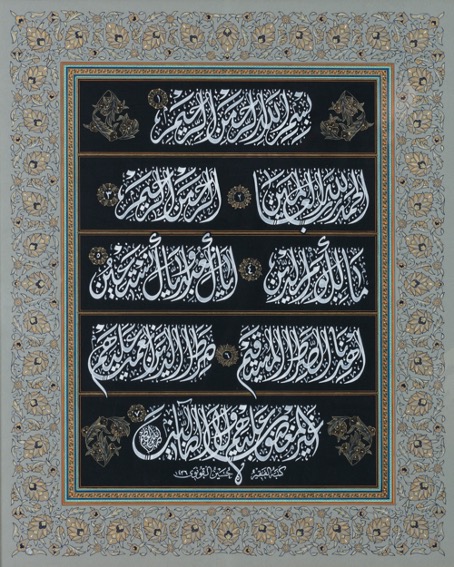 بسم الله الرحمن الرحيم ١
الحمد لله رب العالمين ٢ الرحمن الرحيم ٣
مالك يوم الدين ٤ إياك نعبد وإياك نستعين ٥
اهدنا الصراط المستقيم ٦ صراط الذين أنعمت عليهم
غير المغضوب عليهم ولا الضالين ٧
كتبه الفقير حسين